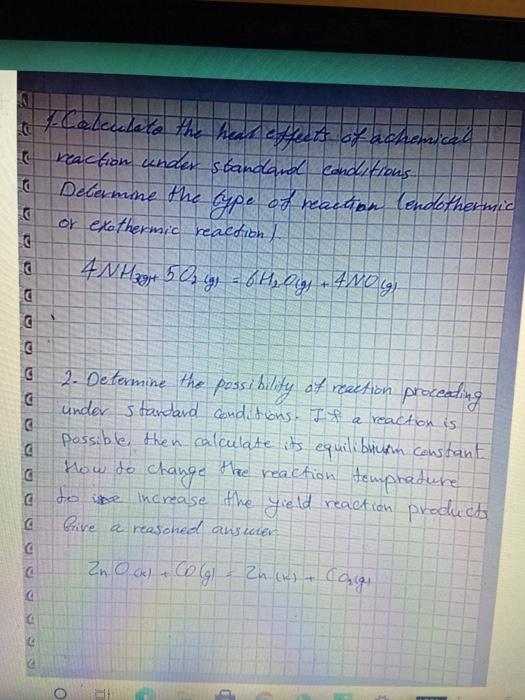 1. Calculate the heat effects of a chemical
reaction under standard conditions.
Determine the type of reaction (endothermic
or exothermic reaction).
4NH3(g) + 5O2(g) = 6H2O(g) + 4NO(g)
2. Determine the possibility of reaction proceeding
under standard conditions. If a reaction is
possible, then calculate its equilibrium constant
How to change the reaction temprature
to increase the yield reaction products
Give a reasoned answer.
ZnO(к) + CO(g) = Zn(к) + CO2(g)